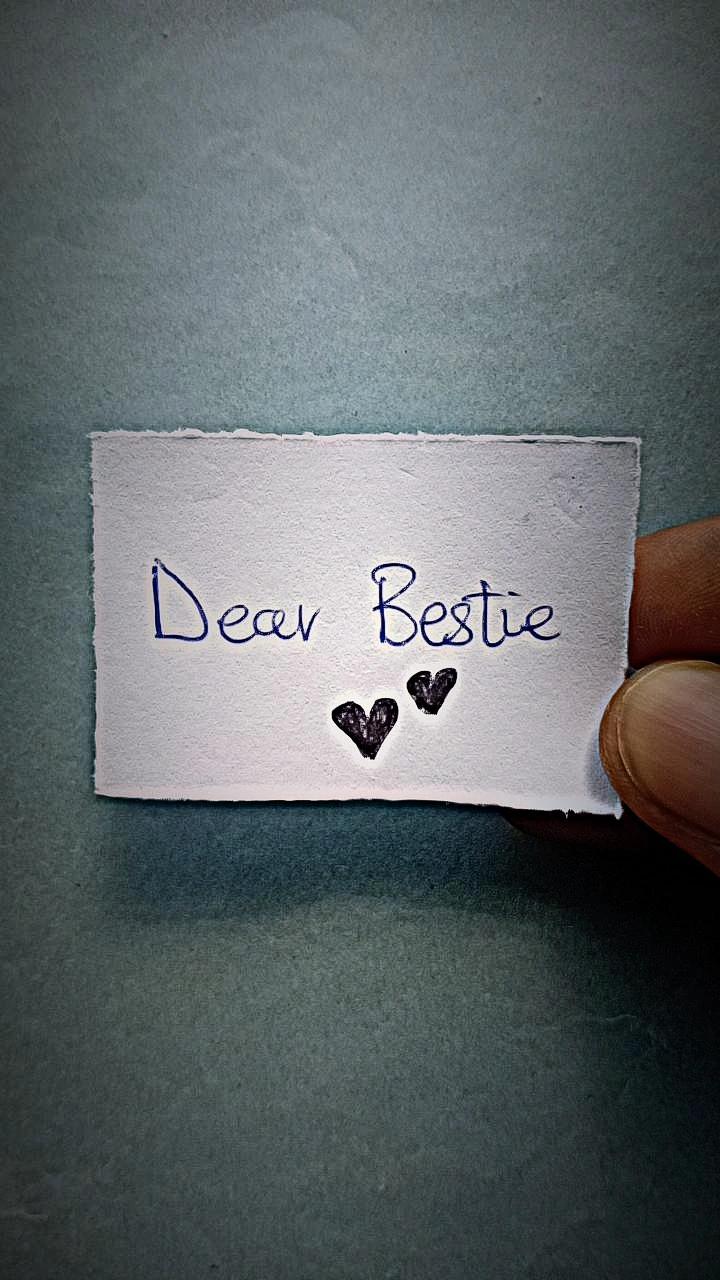 Dear Bestie